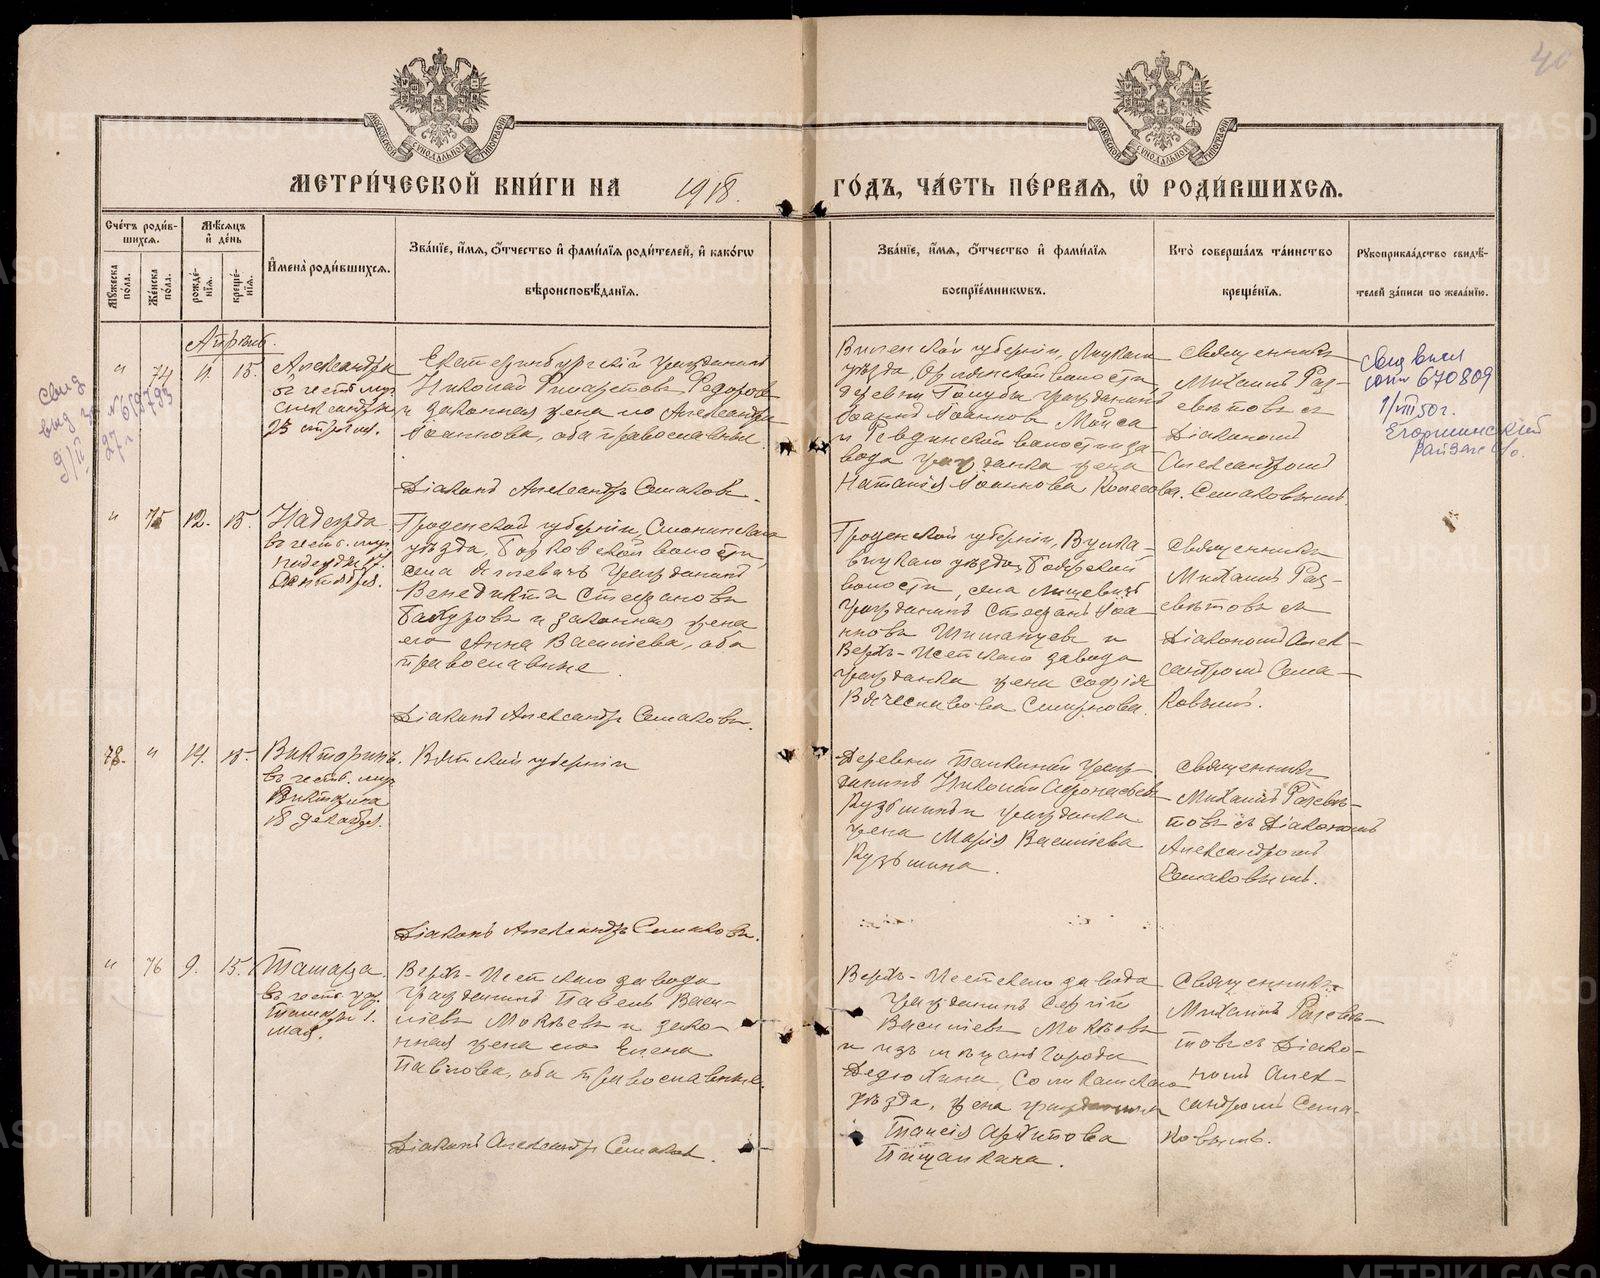 40
МОСКОВСКОЙ СѴНОДАЛЬНОЙ ТИПОГРАФІИ
МОСКОВСКОЙ СѴНОДАЛЬНОЙ ТИПОГРАФІИ
МЕТРИ́ЧЕСКОЙ КНИ́ГИ НА 1918. ГО́ДЪ, ЧА́СТЬ ПЕ́РВАЯ, Ѡ РОДИ́ВШИХСЯ.
Сче́тъ роди́в-
шихся.
Мꙋ́жеска по́ла.
Же́нска по́ла.
Мѣ́сяцъ
и҆ де́нь
рожде́-
нїя.
креще́-
нїя.
И҆мена̀ роди́вшихся.
Зва́нїе, и҆́мя, ѻ҆́тчество и҆ фами́лїя роди́телей, и҆ како́гѡ
вѣроисповѣ́данїя.
Зва́нїе, и҆́мя, ѻ҆́тчество и҆ фами́лїя
воспрїе́мникѡвъ.
Кто̀ соверша́лъ та́инство
креще́нїя.
Рꙋкоприкла́дство свидѣ́-
телей за́писи по жела́нїю.
Апрѣль.
" 74 11. 15.
Александра
въ честь муч.
Александры
23 апрѣля.
Екатеринбургскій гражданинъ
Николай Филаретовъ Федоровъ
и законная жена его Александра
Іоаннова, оба православные
Діаконъ Александръ Семаковъ.
Виленской губерніи,
уѣзда, волости,
деревни Голубы гражданинъ
Іоаннъ Іоанновъ Мойса
и Ревдинской волости за-
вода гражданка жена
Наталія Іоаннова Колесова.
Священникъ
Михаилъ Раз-
свѣтовъ съ
Діакономъ
Александромъ
Семаковымъ
Свид. выд.
670809
1/VIII 50 г.
Егоршинский
райзагс
свид
выд
№ 659795
" 75 12. 15.
Надежда
въ честь муч.
Надежды 17.
Сентября.
Гроденской губерніи, Слонимскаго
уѣзда, волости,
села гражданинъ
Венедиктъ Стефановъ
и законная жена
его Анна Васильева, оба
православные.
Діаконъ Александръ Семаковъ.
Гроденской губерніи, Вулка-
выскаго уѣзда,
волости, села
гражданинъ Стефанъ Іоа-
нновъ и
Верхъ-Исетскаго завода
гражданка жена Софія
Вячеславова Смирнова.
Священникъ
Михаилъ Раз-
свѣтовъ съ
Діакономъ Алек-
сандромъ Сема-
ковымъ.
78. " 14. 15.
Викторинъ.
въ честь муч.
Викторина
18 декабря.
Вятской губерніи
Діаконъ Александръ Семаковъ.
Деревни граж-
данинъ Николай Афонасьевъ
Кузьминъ и гражданка
жена Марія Васильева
Кузьмина.
Священникъ
Михаилъ Разсвѣ-
товъ съ Діакономъ
Александромъ
Семаковымъ.
" 76 9. 15.
Тамара.
въ честь
Тамары 1.
мая.
Верхъ-Исетскаго завода
Гражданинъ Павелъ Васи-
льевъ Мокѣевъ и зако-
нная жена его Елена
Павлова, оба православные.
Діаконъ Александръ Семаковъ.
Верхъ-Исетскаго завода
гражданинъ Сергій
Васильевъ Мокѣевъ
и изъ мѣщанъ города
Дедюхина, Соликамскаго
уѣзда, жена гражданина
Таисія Архипова
Пищалкина.
Священникъ
Михаилъ Разсвѣ-
товъ съ Діако-
номъ Алек-
сандромъ Сема-
ковымъ.